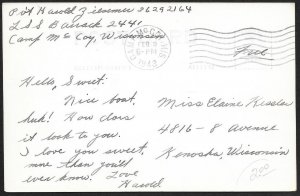 Pvt Harold Ziesemer 36292164
L S S Barrack 2441
Camp Mc Coy, Wisconsin
Free
Hello, Sweet:
Nice boat,
huh! How does
it look to you.
I love you sweet,
more than you'll
ever know. Love
Harold
Miss Elaine Kessler
4816-8 Avenue
Kenosha, Wisconsin